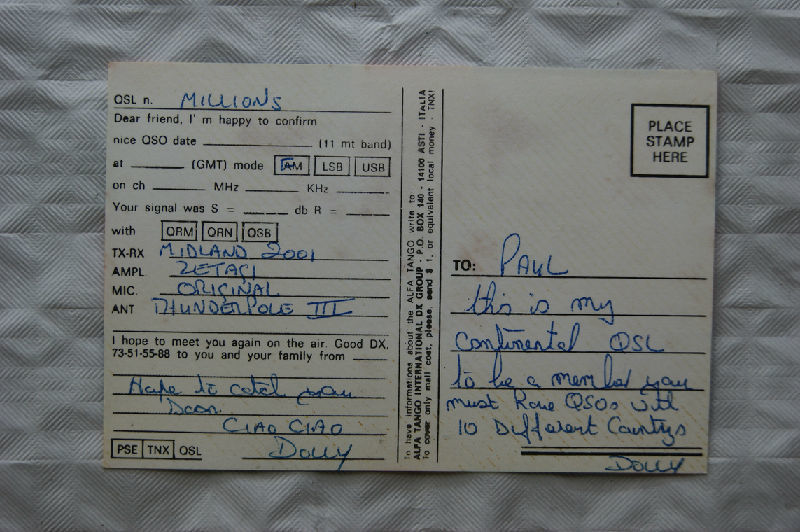 QSL n. MILLIONS
Dear friend, I'm happy to confirm
nice QSO date (11 mt band)
at (GMT) mode AM LSB USB
on ch MHz KHz
Your signal was S = db R =
with QRM QRN QSB
TX-RX MIDLAND 2001
AMPL ZETAGI
MIC. ORIGINAL
ANT THUNDERPOLE III
I hope to meet you again on the air. Good DX,
73-51-55-88 to you and your family from
Hope to catch you
Doon
CIAO CIAO
Dolly
PSE TNX QSL
To have informations about the ALFA TANGO write to
ALFA TANGO INTERNATIONAL DX GROUP - P.O. BOX 140 - 14100 ASTI - ITALIA
To cover only mail cost, please, send $ 1. or equivalent local money TNX!
PLACE
STAMP
HERE
TO: PAUL
this is my
Continental QSL
to be a member you
must have QSOs with
10 Different Countrys
Dolly